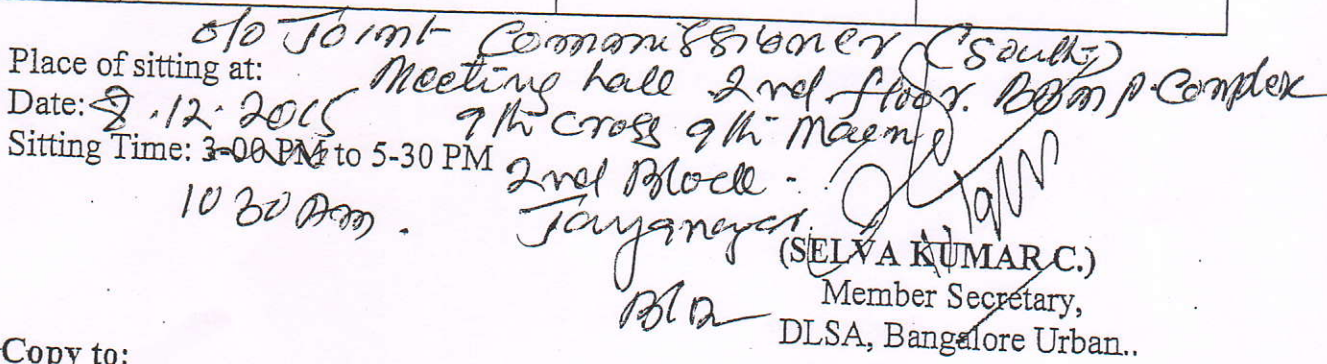 O/o Joint Commissioner (South)
Place of sitting at: Meeting hall 2nd floor. BBMP Complex
Date: 8.12.2015 9th Cross 9th Main
Sitting Time: 3-00 PM to 5-30 PM 2nd Block -
10 30 Am. Jayanagar
BLR
(SELVA KUMAR C.)
Member Secretary,
DLSA, Bangalore Urban..
Copy to: